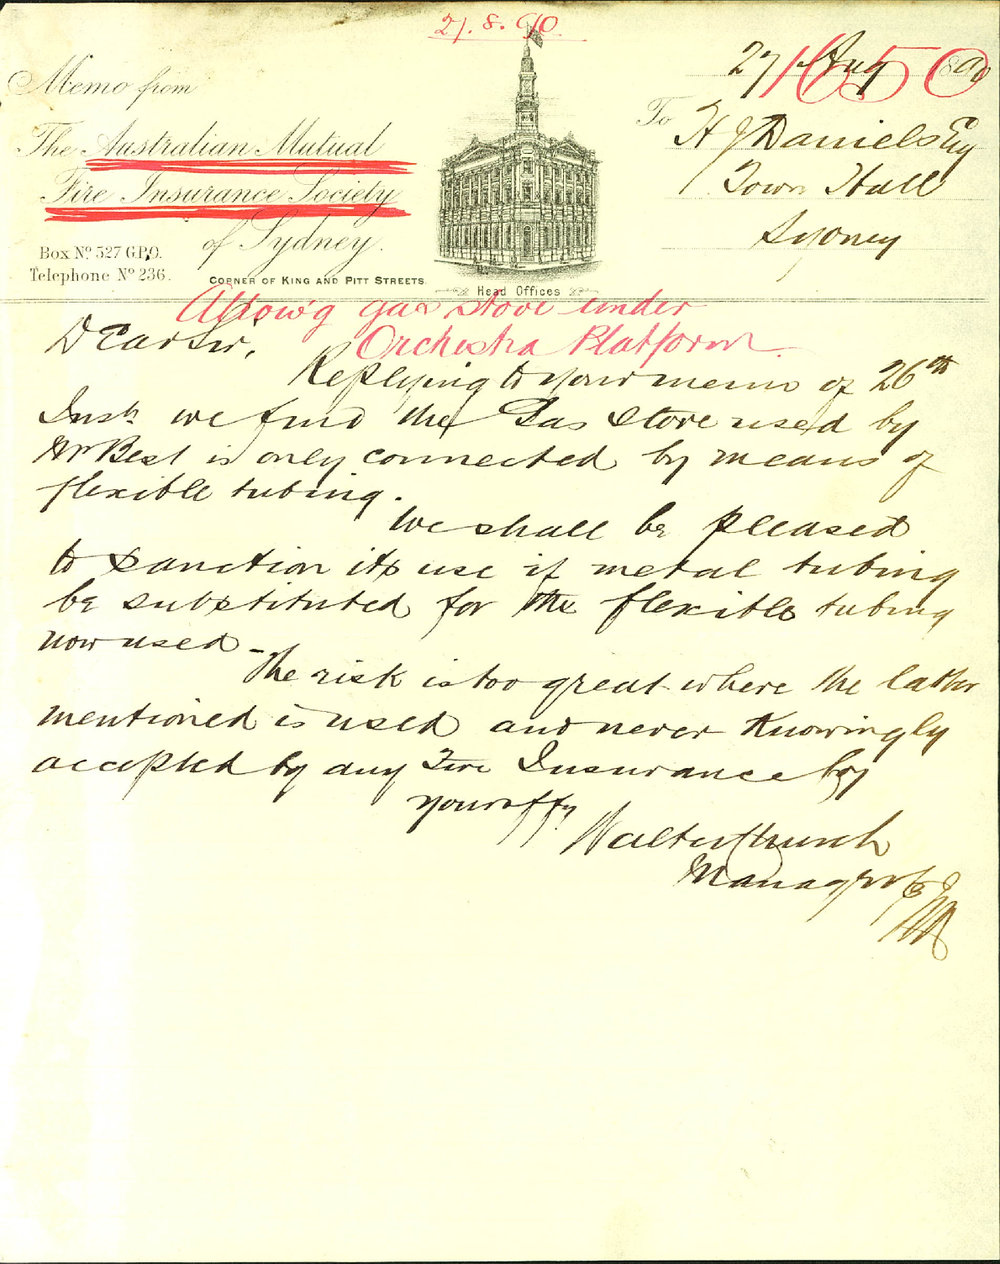 21.8.90.
Memo from
The Australian Mutual
Fire Insurance Society
of Sydney.
Box No. 527 G.P.O.
Telephone No. 236.
CORNER OF KING AND PITT STREETS.
Head Offices
27 Aug 1890
1650
To H J Daniels Esq
Town Hall
Sydney
Allow'g gas stove under
Orchestra Platform.
Dear Sir,
Replying to your memo of 26th
Inst. we find the Gas Stove used by
Mr Best is only connected by means of
flexible tubing.
We shall be pleased
to sanction its use if metal tubing
be substituted for the flexible tubing
now used -
The risk is too great where the latter
mentioned is used and never knowingly
accepted by any Fire Insurance Coy
Yours ffy
Walter Church
Manager